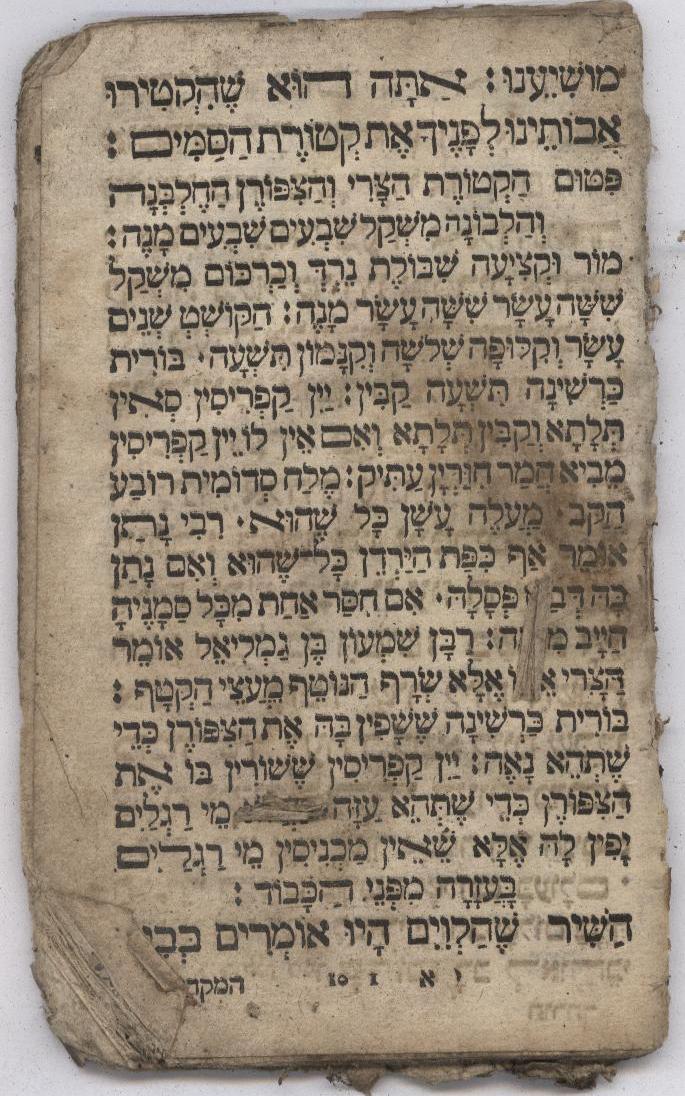 מוֹשִׁיעֵנוּ: אַתָּה הוּא שֶׁהִקְטִירוּ
אֲבוֹתֵינוּ לְפָנֶיךָ אֶת קְטוֹרֶת הַסַּמִּים:
פִּטּוּם הַקְּטוֹרֶת הַצֳּרִי וְהַצִּפּוֹרֶן הַחֶלְבְּנָה
וְהַלְּבוֹנָה מִשְׁקַל שִׁבְעִים שִׁבְעִים מָנֶה:
מוֹר וּקְצִיעָה שִׁבּוֹלֶת נֵרְדְּ וְכַרְכּוֹם מִשְׁקַל
שִׁשָּׁה עָשָׂר שִׁשָּׁה עָשָׂר מָנֶה: הַקּוֹשְׁטְ שְׁנֵים
עָשָׂר וְקִלּוּפָה שְׁלֹשָׁה וְקִנָּמוֹן תִּשְׁעָה. בּוֹרִית
כַּרְשִׁינָה תִּשְׁעָה קַבִּין: יֵין קַפְרִיסִין סְאִין
תְּלָתָא וְקַבִּין תְּלָתָא וְאִם אֵין לוֹ יֵין קַפְרִיסִין
מֵבִיא חֲמַר חִוַּרְיָן עַתִּיק: מֶלַח סְדוֹמִית רוֹבַע
הַקַּב. מַעֲלֶה עָשָׁן כָּל שֶׁהוּא. רִבִּי נָתָן
אוֹמֵר אַף כִּפַּת הַיַּרְדֵּן כָּל־שֶׁהוּא וְאִם נָתַן
בָּהּ דְּבַ פְּסָלָהּ. אִם חִסֵּר אַחַת מִכָּל סַמָּנֶיהָ
חַיָּיב מִ ה: רַבָּן שִׁמְעוֹן בֶּן גַּמְלִיאֵל אוֹמֵר
הַצֳּרִי אֵ וֹ אֶלָּא שְׂרָף הַנּוֹטֵף מֵעֲצֵי הַקְּטָף:
בּוֹרִית כַּרְשִׁינָה שֶׁשָּׁפִין בָּהּ אֶת הַצִּפּוֹרֶן כְּדֵי
שֶׁתְּהֵא נָאָה: יֵין קַפְרִיסִין שֶׁשּׁוֹרִין בּוֹ אֶת
הַצִּפּוֹרֶן כְּדֵי שֶׁתְּהֵא עַזָּה מֵי רַגְלַיִם
יָפִין לָהּ אֶלָּא שֶׁאֵין מַכְנִיסִין מֵי רַגְלַיִם
בָּעֲזָרָה מִפְּנֵי הַכָּבוֹד:
הַשִּׁיר שֶׁהַלְוִיִּם הָיוּ אוֹמְרִים בְּבֵי
א 1 10 המקד